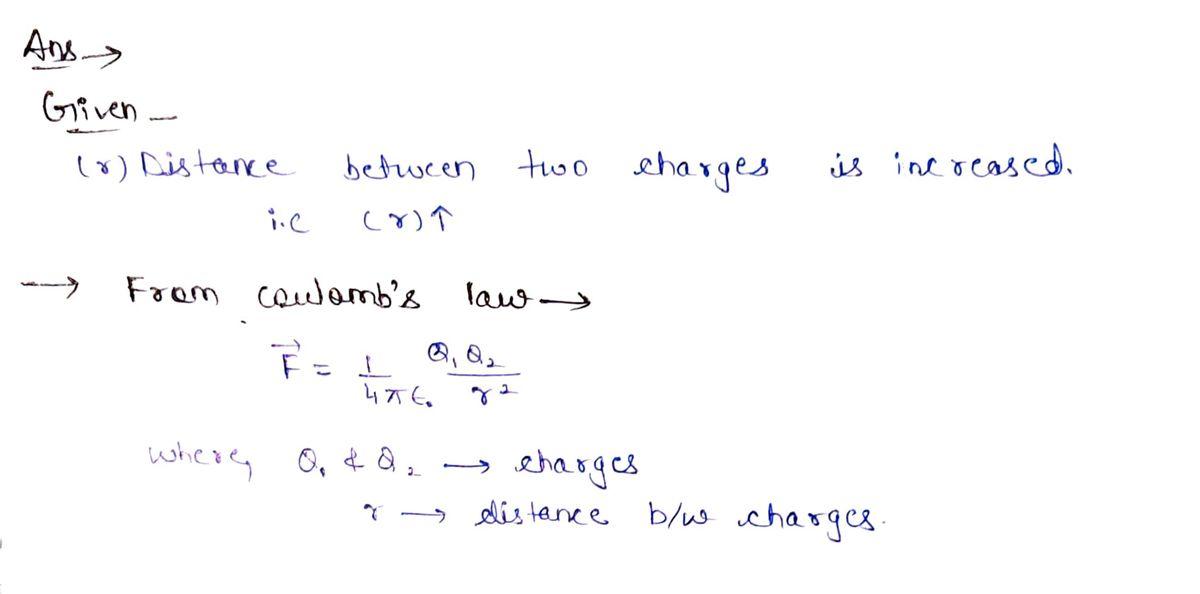 Ans →
Given –
(r) Distance between two charges is increased.
i.e (r)↑
→ From coulomb's law →
F⃗ = 1/4πϵ₀ Q₁Q₂/r²
where, Q₁ & Q₂ → charges
r → distance b/w charges.